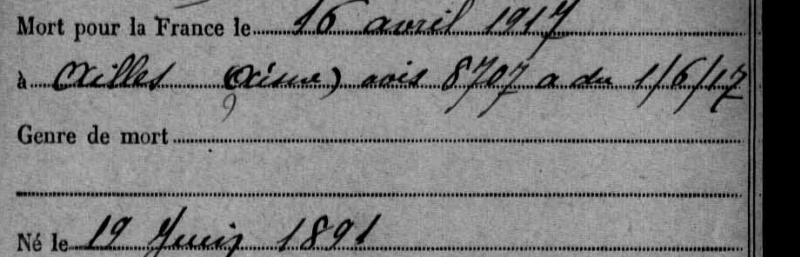 Mort pour la France le 16 avril 1917
à Ailles (Aisne) avis 8707 a du 1/6/17
Genre de mort
Né le 19 Juin 1891